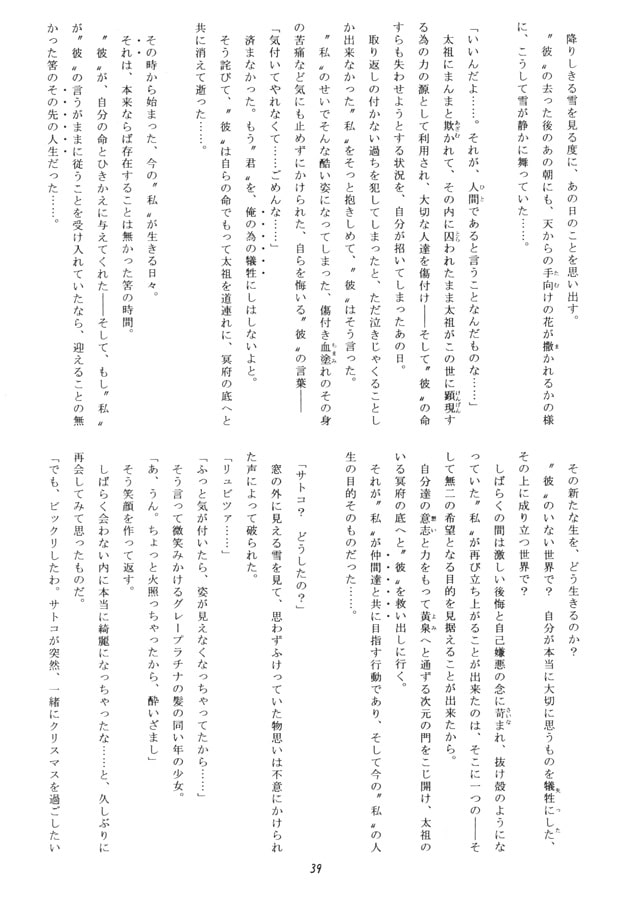 降りしきる雪を見る度に、あの日のことを思い出す。
〝彼〟の去った後のあの朝にも、天からの手向けの花が撒かれるかの様
に、こうして雪が静かに舞っていた……。
「いいんだよ……。それが、人間であると言うことなんだものな……」
太祖にまんまと欺かれて、その内に囚われたまま太祖がこの世に顕現す
る為の力の源として利用され、大切な人達を傷付け――そして〝彼〟の命
すらも失わせようとする状況を、自分が招いてしまったあの日。
取り返しの付かない過ちを犯してしまったと、ただ泣きじゃくることし
か出来なかった〝私〟をそっと抱きしめて、〝彼〟はそう言った。
〝私〟のせいでそんな酷い姿になってしまった、傷付き血塗れのその身
の苦痛など気にも止めずにかけられた、自らを悔いる〝彼〟の言葉――
「気付いてやれなくて……ごめんな……」
済まなかった。もう〝君〟を、俺の為の犠牲にしはしないよと。
そう詫びて、〝彼〟は自らの命でもって太祖を道連れに、冥府の底へと
共に消えて逝った……。
その時から始まった、今の〝私〟が生きる日々。
それは、本来ならば存在することは無かった筈の時間。
〝彼〟が、自分の命とひきかえに与えてくれた――そして、もし〝私〟
が〝彼〟の言うがままに従うことを受け入れていたなら、迎えることの無
かった筈のその先の人生だった……。
その新たな生を、どう生きるのか？
〝彼〟のいない世界で？　自分が本当に大切に思うものを犠牲にした、
その上に成り立つ世界で？
しばらくの間は激しい後悔と自己嫌悪の念に苛まれ、抜け殻のようにな
っていた〝私〟が再び立ち上がることが出来たのは、そこに一つの――そ
して無二の希望となる目的を見据えることが出来たから。
自分達の意志と力をもって黄泉へと通ずる次元の門をこじ開け、太祖の
いる冥府の底へと〝彼〟を救い出しに行く。
それが〝私〟が仲間達と共に目指す行動であり、そして今の〝私〟の人
生の目的そのものだった……。
「サトコ？　どうしたの？」
窓の外に見える雪を見て、思わずふけっていた物思いは不意にかけられ
た声によって破られた。
「リュビツァ……」
「ふっと気が付いたら、姿が見えなくなっちゃってたから……」
そう言って微笑みかけるグレープラチナの髪の同い年の少女。
「あ、うん。ちょっと火照っちゃったから、酔いざまし」
そう笑顔を作って返す。
しばらく会わない内に本当に綺麗になっちゃったな……と、久しぶりに
再会してみて思ったものだ。
「でも、ビックリしたわ。サトコが突然、一緒にクリスマスを過ごしたい
39